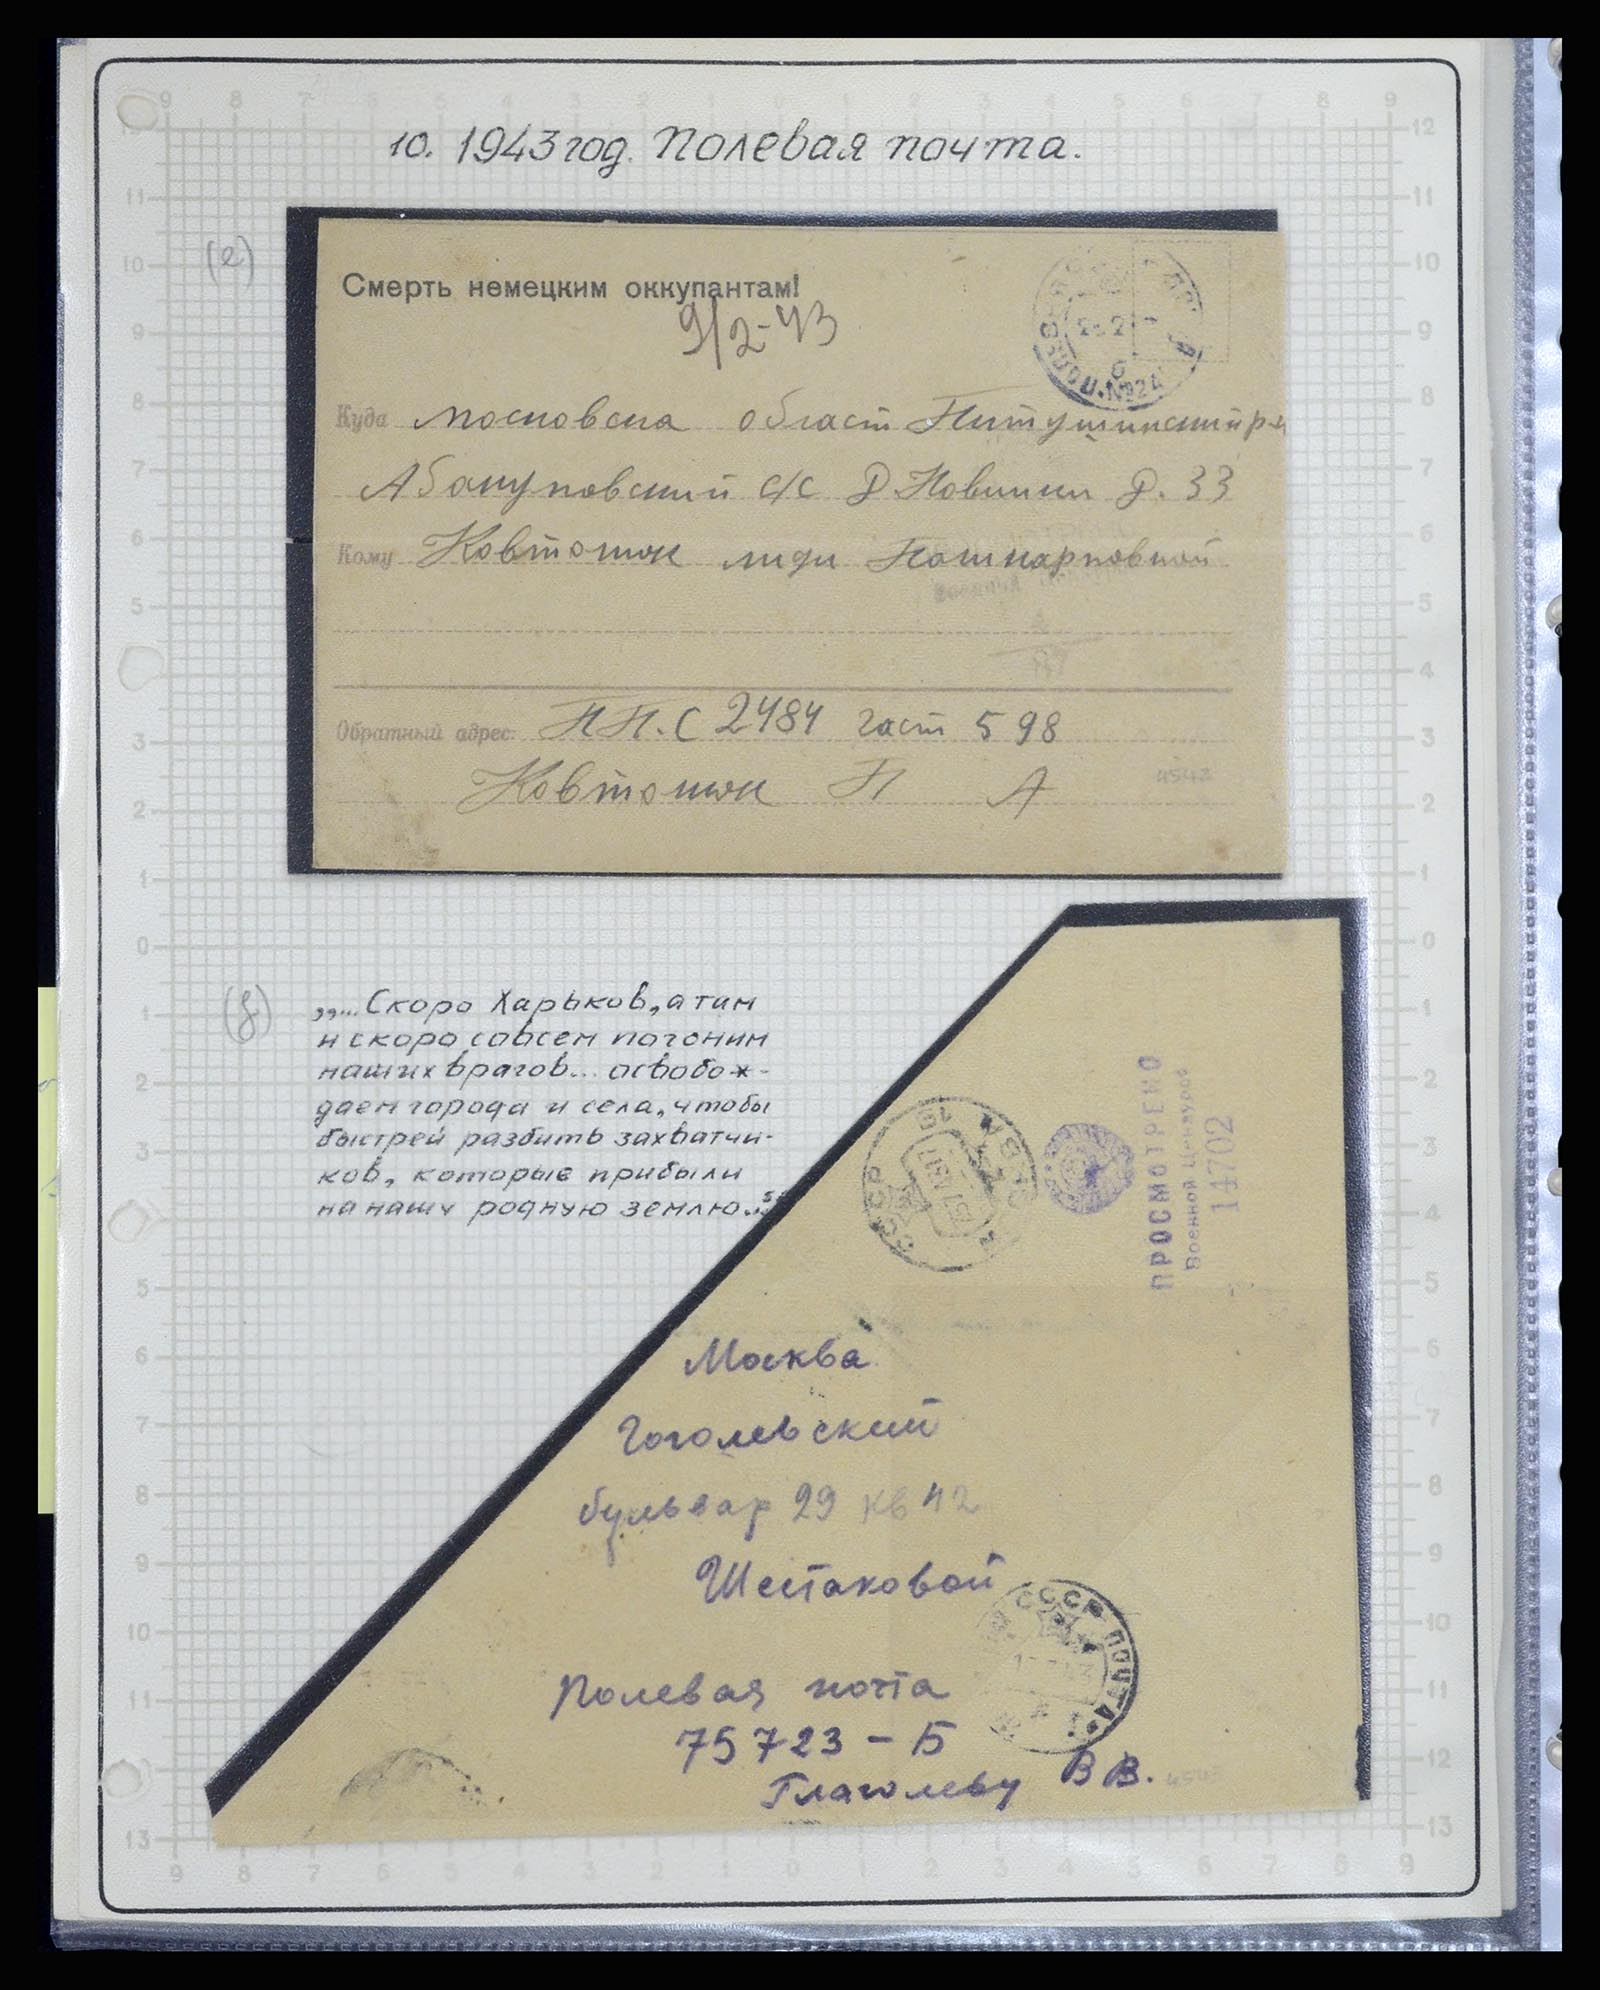 10. 1943 год. Полевая почта.
(е)
Смерть немецким оккупантам!
9/2-43
Куда Московска област Питушинский р-н
Абакумовский с/с Д. Новинки Д. 33
Кому Ковтонюк лиди
Обратный адрес: П П. С 2484 част 598
Ковтонюк П А
4542
(f)
„...Скоро Харьков, а там
и скоро совсем погоним
наших врагов... освобож-
даем города и села, чтобы
быстрей разбить захватчи-
ков, которые прибыли
на нашу родную землю..."
СССР
МОСКВА
ПРОСМОТРЕНО
Военной Цензурой
14702
Москва
Гоголевский
бульвар 29 кв 42
Шестаковой
СССР ПОЧТА
Полевая почта
75723 - Б
Глаголеву В В.